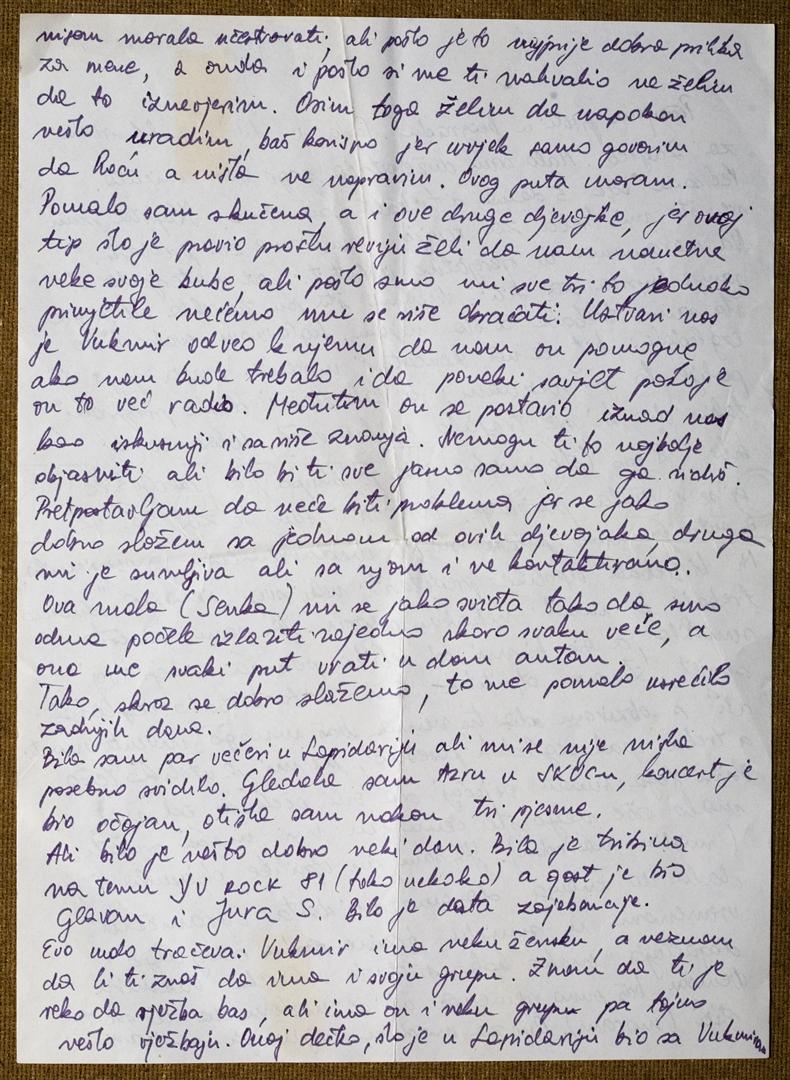 nisam morala učestvovati, ali pošto je to najprije dobra prilika
za mene, a onda i pošto si me ti nahvalio ne želim
da to iznevjerim. Osim toga želim da napokon
nešto uradim, baš korisno jer uvijek samo govorim
da hoću a ništa ne napravim. Ovog puta moram.
Pomalo sam skučena, a i ove druge djevojke, jer ovaj
tip što je pravio prošlu reviju želi da nam nametne
neke svoje bube, ali pošto smo mi sve tri to jednako
primjetile nećemo mu se više obraćati. Ustvari nas
je Vukmir odveo k njemu da nam on pomogne
ako nam bude trebalo i da poneki savjet pošto je
on to već radio. Međutim on se postavio iznad nas
kao iskusniji i sa više znanja. Nemogu ti to najbolje
objasniti ali bilo bi ti sve jasno samo da ga vidiš.
Pretpostavljam da neće biti problema jer se jako
dobro slažem sa jednom od ovih djevojaka, druga
mi je sumljiva ali sa njom i ne kontaktiramo.
Ova mala (Senka) mi se jako sviđa tako da smo
odma počele izlaziti zajedno skoro svaku veče, a
ona me svaki put vrati u dom autom.
Tako, skroz se dobro slažemo, to me pomalo usrećilo
zadnjih dana.
Bila sam par večeri u Lapidariju ali mi se nije ništa
posebno svidilo. Gledala sam Azru u SKUCu, koncert je
bio očajan, otišla sam nakon tri pjesme.
Ali bilo je nešto dobro neki dan. Bila je tribina
na temu YU ROCK 81 (tako nekako) a gost je bio
Glavan i Jura S. Bilo je dosta zajebancije.
Evo malo tračeva. Vukmir ima neku žensku, a neznam
da li ti znaš da ima i svoju grupu. Znam da ti je
reko da vježba bas, ali ima on i neku grupu pa tajno
nešto vježbaju. Onaj dečko, što je u Lapidariju bio sa Vukmirom